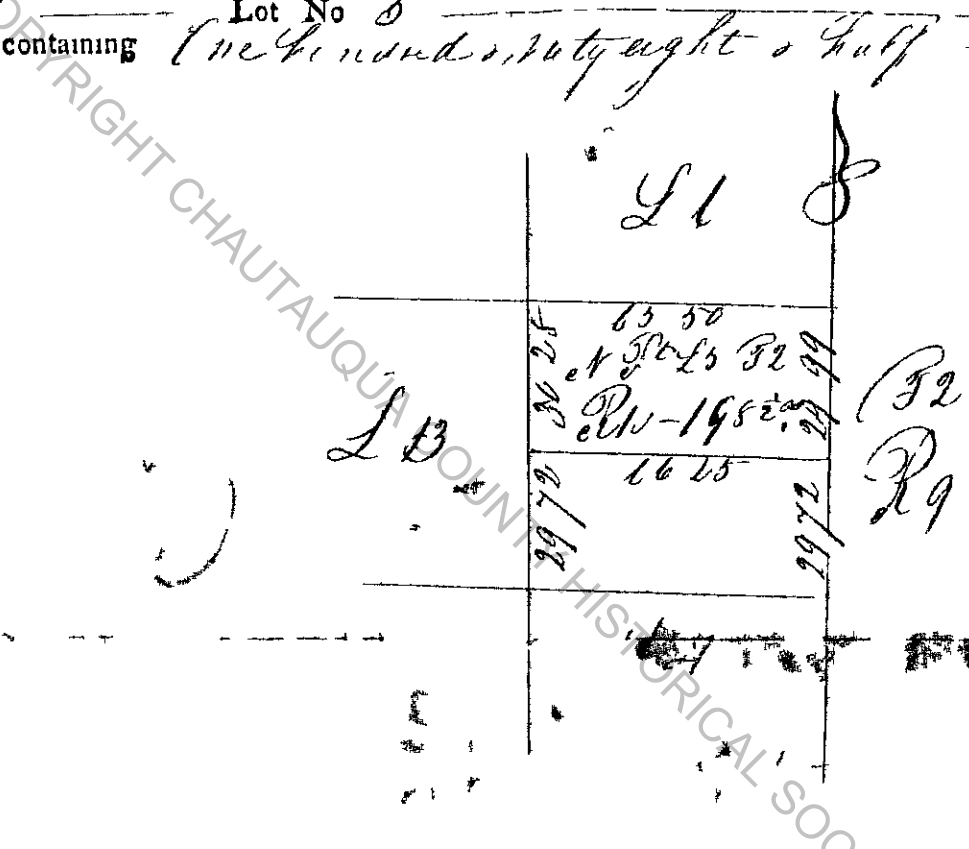 Lot No 8
containing One hundred ninety eight & half
L 1
63 50
N Pt L5 T2
R10-198½ a
30 25
29 99
L 13
T2
R9
16 25
29 72
29 72
COPYRIGHT CHAUTAUQUA COUNTY HISTORICAL SOC